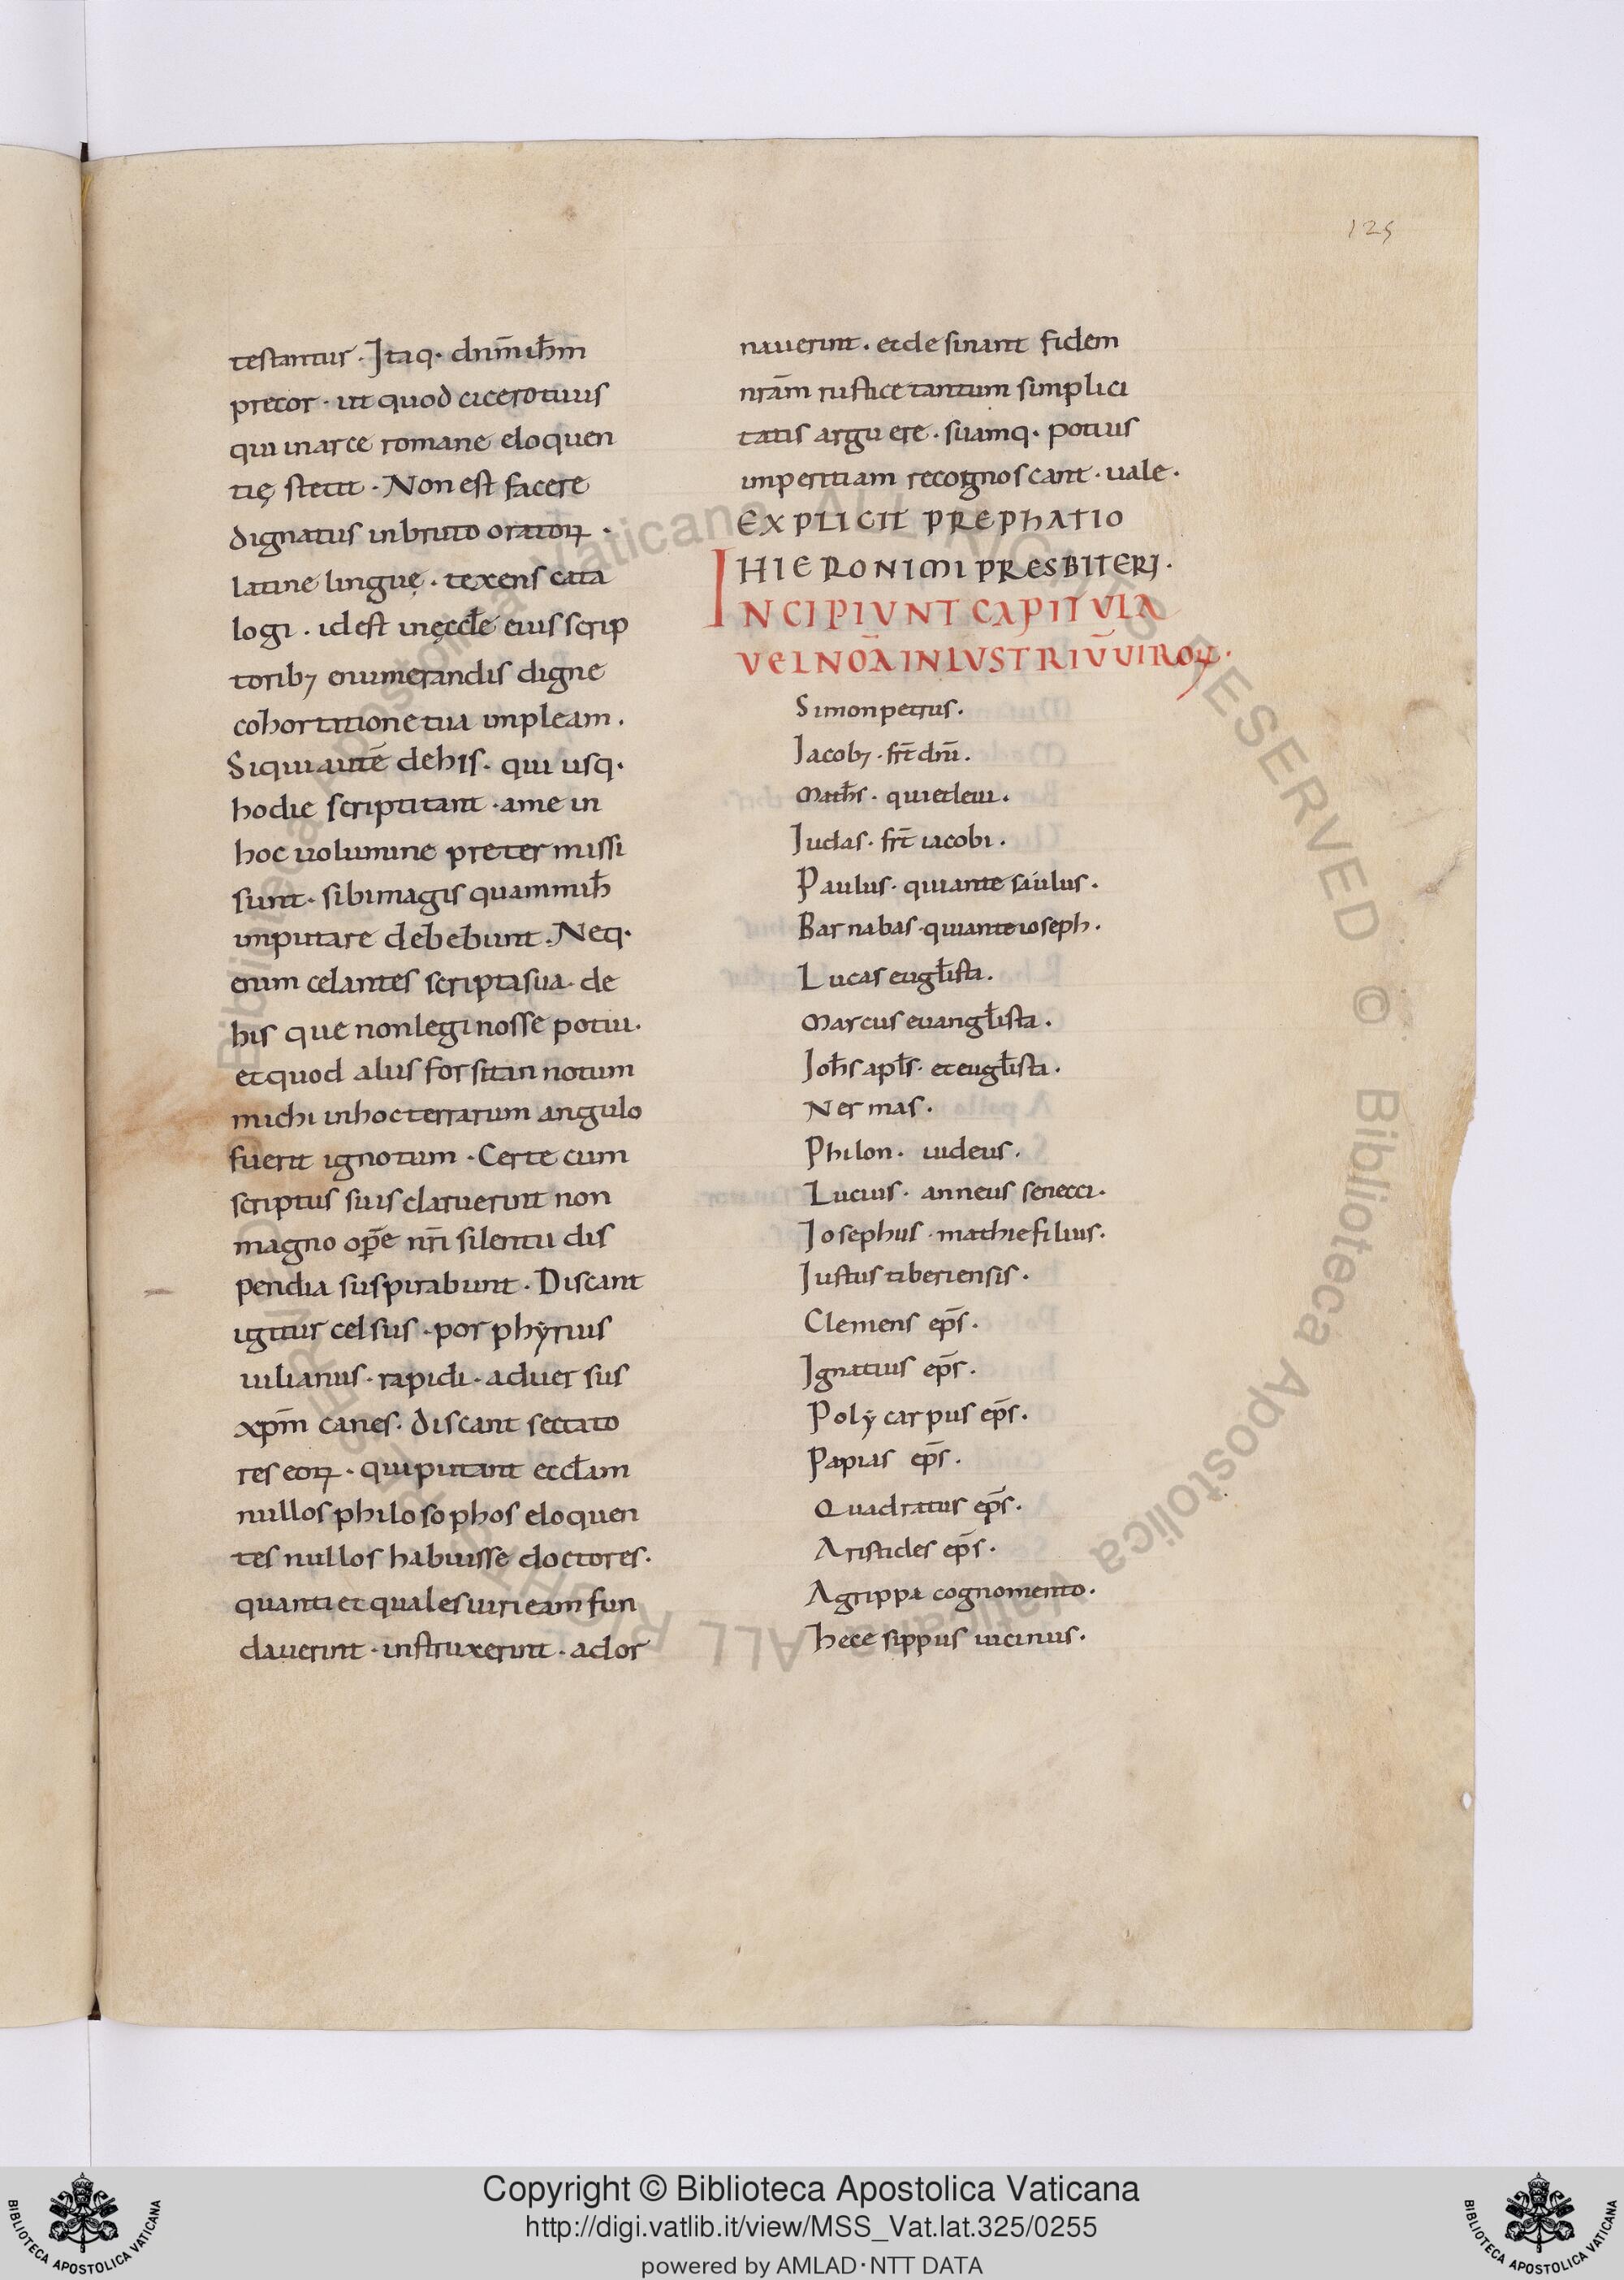 125
testantur · Itaq· dn̄m ih̄m
precor · ut quod cicero tuus
qui in arce romane eloquen
tię stetit · Non est facere
dignatus in bruto oratoꝝ ·
latine linguę · texens cata
logi · id est in ęccl̄e eius scrip
torib; enumerandis digne
cohortatione tua impleam ·
Siqui autē de his · qui usq·
hodie scriptitant · a me in
hoc uolumine preter missi
sunt · sibi magis quam mih̄
imputare debebunt · Neq·
enim celantes scripta sua · de
his que non legi nosse potui ·
et quod aliis forsitan notum
michi in hoc terrarum angulo
fuerit ignotum · Certe cum
scriptis suis claruerint non
magno op̄e nr̄i silentii dis
pendia suspirabunt · Discant
igitur celsus · porphẏrius
iulianus · rapidi · aduersus
xp̄m canes · discant sectato
res eoꝝ · qui putant eccl̄am
nullos philosophos eloquen
tes nullos habuisse doctores ·
quanti et quales uiri eam fun
dauerint · instruxerint · ador
nauerint · et desinant fidem
nr̄am rustice tantum simplici
tatis arguere · suamq· potius
imperitiam recognoscant · uale ·
EXPLICIT PREPHATIO
HIERONIMI PRESBITERI ·
INCIPIUNT CAPITULA
VEL NOA̅ INLUSTRIU̅ UIROꝝ ·
Simon petrus ·
Jacob; · fr̄t dn̄i ·
Math̄s · qui et leui ·
Judas · fr̄t iacobi ·
Paulus · qui ante saulus ·
Barnabas · qui ante ioseph ·
Lucas eugl̄ista ·
Marcus euangl̄ista ·
Joh̄s apl̄s · et eugl̄ista ·
Nermas ·
Philon · iudeus ·
Lucius · anneus senecci ·
Josephus · mathie filius ·
Justus tiberiensis ·
Clemens ep̄s ·
Ignatius ep̄s ·
Polẏcarpus ep̄s ·
Papias ep̄s ·
Quadratus ep̄s ·
Aristides ep̄s ·
Agrippa cognomento ·
hecesippus uicinus ·
Copyright © Biblioteca Apostolica Vaticana
http://digi.vatlib.it/view/MSS_Vat.lat.325/0255
powered by AMLAD·NTT DATA
BIBLIOTECA APOSTOLICA VATICANA
BIBLIOTECA APOSTOLICA VATICANA